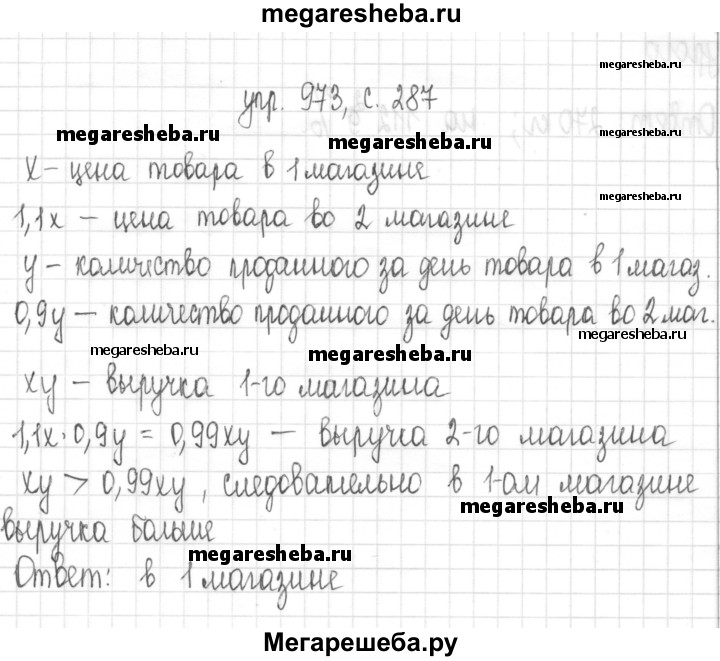 megaresheba.ru
megaresheba.ru
упр. 973, с. 287
megaresheba.ru
megaresheba.ru
x – цена товара в 1 магазине
megaresheba.ru
1,1x – цена товара во 2 магазине
y – количество проданного за день товара в 1 магаз.
0,9y – количество проданного за день товара во 2 маг.
megaresheba.ru
megaresheba.ru
megaresheba.ru
xy – выручка 1-го магазина
1,1x·0,9y = 0,99xy – выручка 2-го магазина
xy > 0,99xy, следовательно в 1-ом магазине
megaresheba.ru
выручка больше
megaresheba.ru
Ответ: в 1 магазине
Мегарешеба.ру